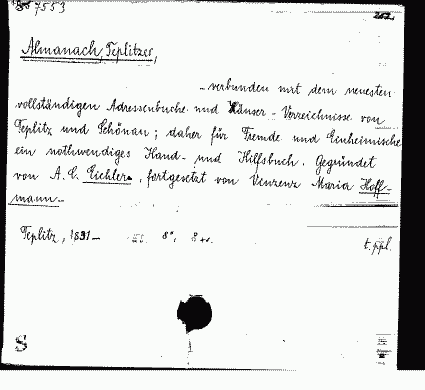 7553
Almanach, Teplitzer,
verbunden mit dem neuesten
vollständigen Adressenbuche und Häuser-Verzeichnisse von
Teplitz und Schönau; daher für Fremde und Einheimische
ein nothwendiges Hand- und Hilfsbuch. Gegründet
von A. C. Eichler, fortgesetzt von Vinzenz Maria Hoff-
mann.-
Teplitz, 1831- 8°.
t. ppl.
S